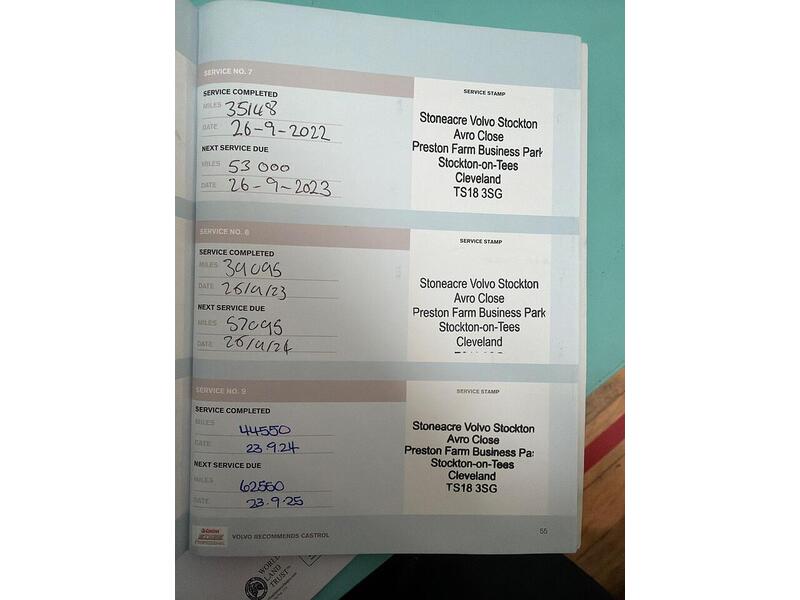 SERVICE NO. 7
SERVICE COMPLETED
MILES 35148
DATE 26-9-2022
NEXT SERVICE DUE
MILES 53 000
DATE 26-9-2023
SERVICE STAMP
Stoneacre Volvo Stockton
Avro Close
Preston Farm Business Park
Stockton-on-Tees
Cleveland
TS18 3SG
SERVICE NO. 8
SERVICE COMPLETED
MILES 39095
DATE 26/9/23
NEXT SERVICE DUE
MILES 57095
DATE 26/9/24
SERVICE STAMP
Stoneacre Volvo Stockton
Avro Close
Preston Farm Business Park
Stockton-on-Tees
Cleveland
SERVICE NO. 9
SERVICE COMPLETED
MILES 44550
DATE 23.9.24
NEXT SERVICE DUE
MILES 62550
DATE 23.9.25
SERVICE STAMP
Stoneacre Volvo Stockton
Avro Close
Preston Farm Business Pa
Stockton-on-Tees
Cleveland
TS18 3SG
Castrol
VOLVO RECOMMENDS CASTROL
55
WORLD
LAND
TRUST